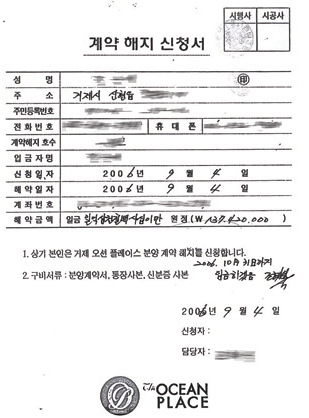 시행사 시공사
계약 해지 신청서
성 명 印
주 소 거제시 신현읍
주민등록번호
전화번호 휴대폰
계약해지 호수
입금자명
신청일자 2006년 9월 4일
해약일자 2006년 9월 4일
계좌번호
해약금액 일금 원정 (₩137,420,000)
1. 상기 본인은 거제 오션 플레이스 분양 계약 해지를 신청합니다.
2006. 10月 31日까지
2. 구비서류 : 분양계약서, 통장사본, 신분증 사본
2006년 9월 4일
신청자 :
담당자 :
The OCEAN
PLACE